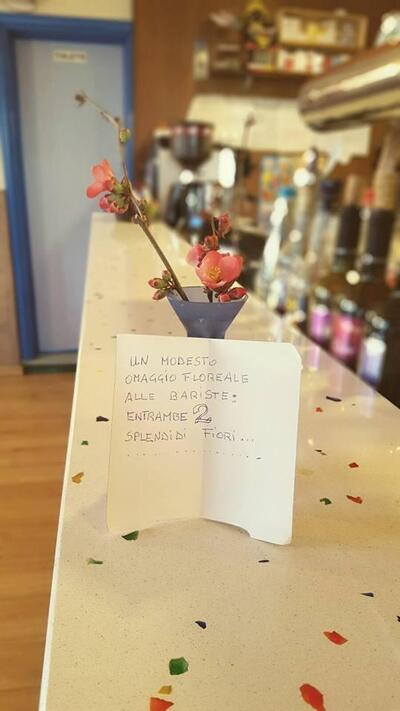 TOILETTE
UN MODESTO
OMAGGIO FLOREALE
ALLE BARISTE:
ENTRAMBE 2
SPLENDIDI FIORI...
...............